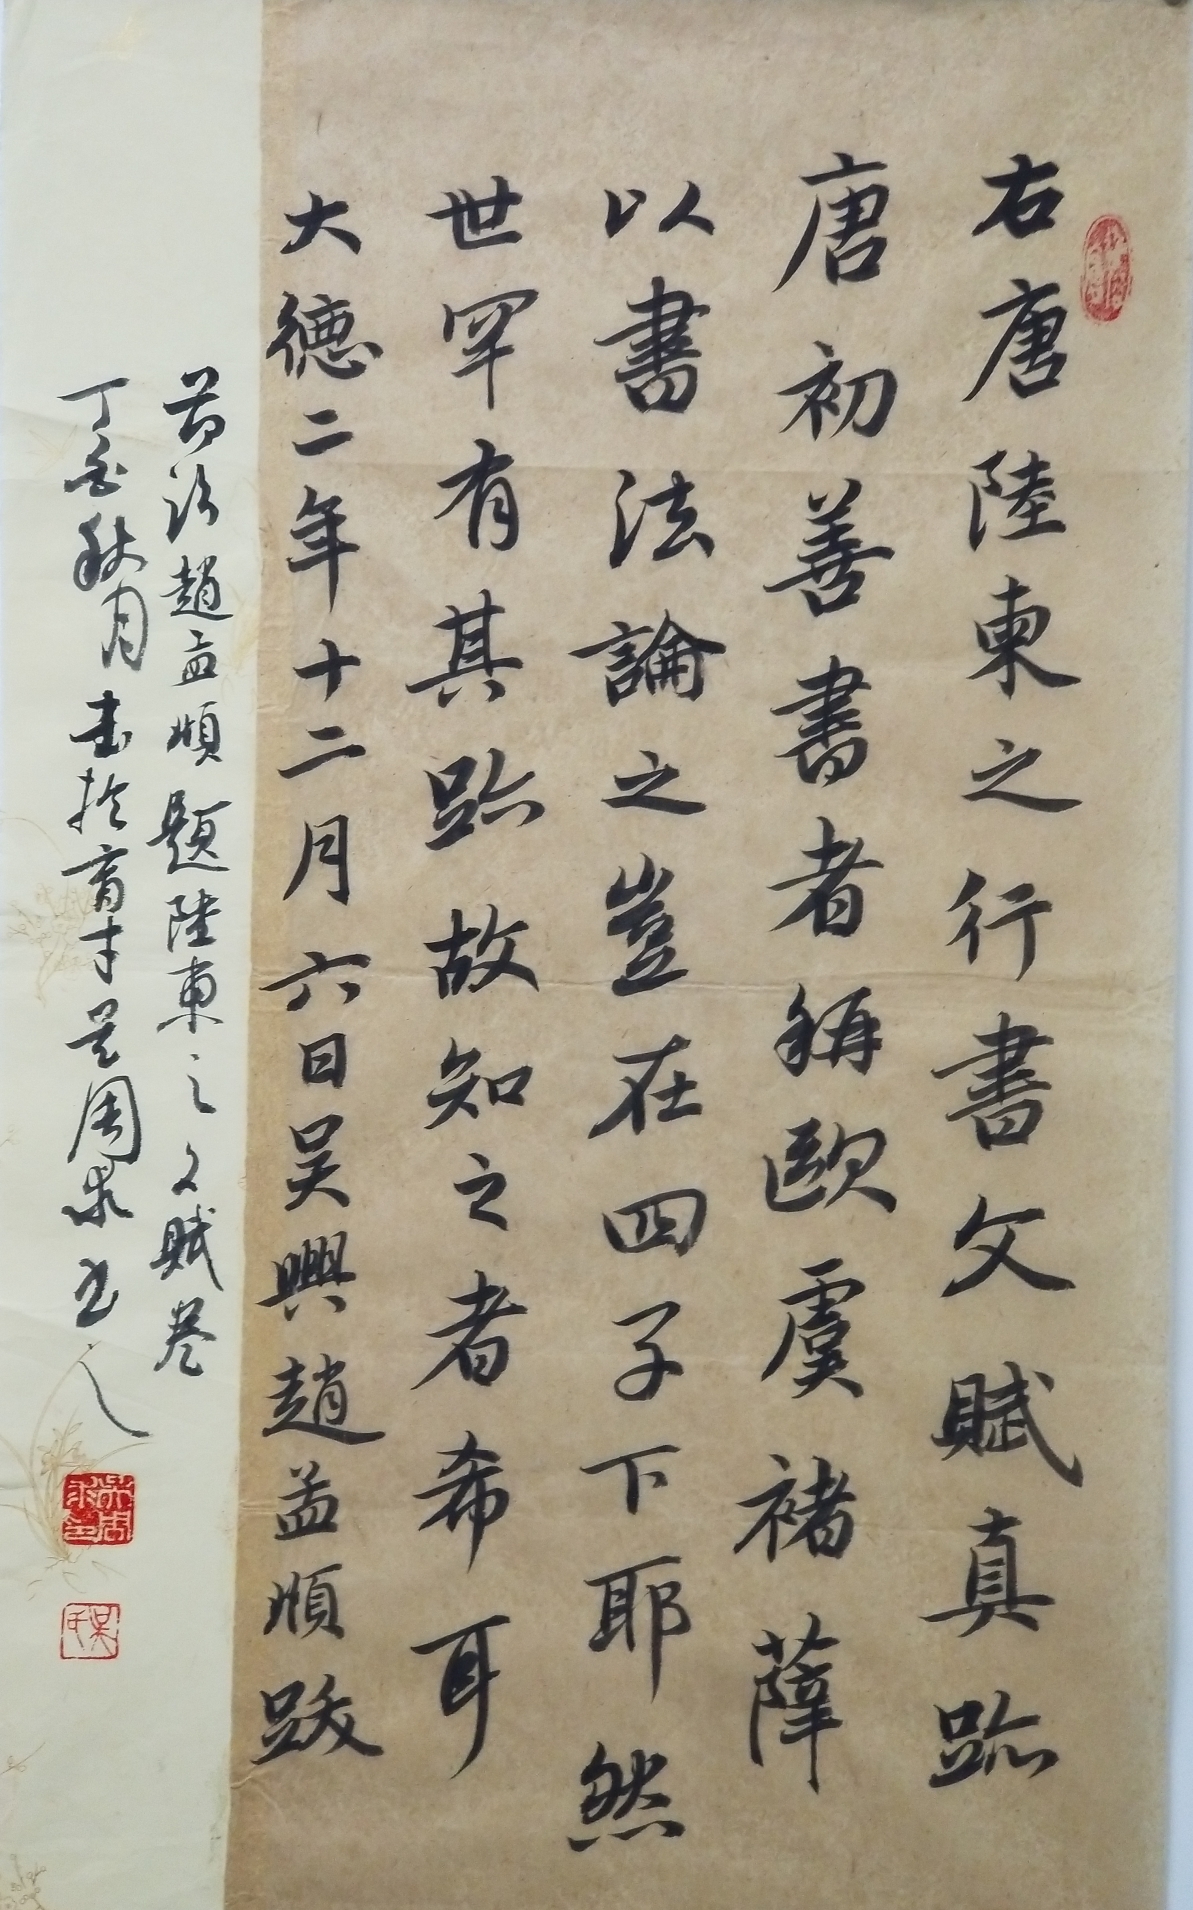 右唐陸柬之行書文賦真跡
唐初善書者稱歐虞褚薛
以書法論之豈在四子下耶然
世罕有其跡故知之者希耳
大德二年十二月六日吳興趙孟順跋
節臨趙孟順題陸柬之文賦卷
丁酉秋月書於育才吳周求書